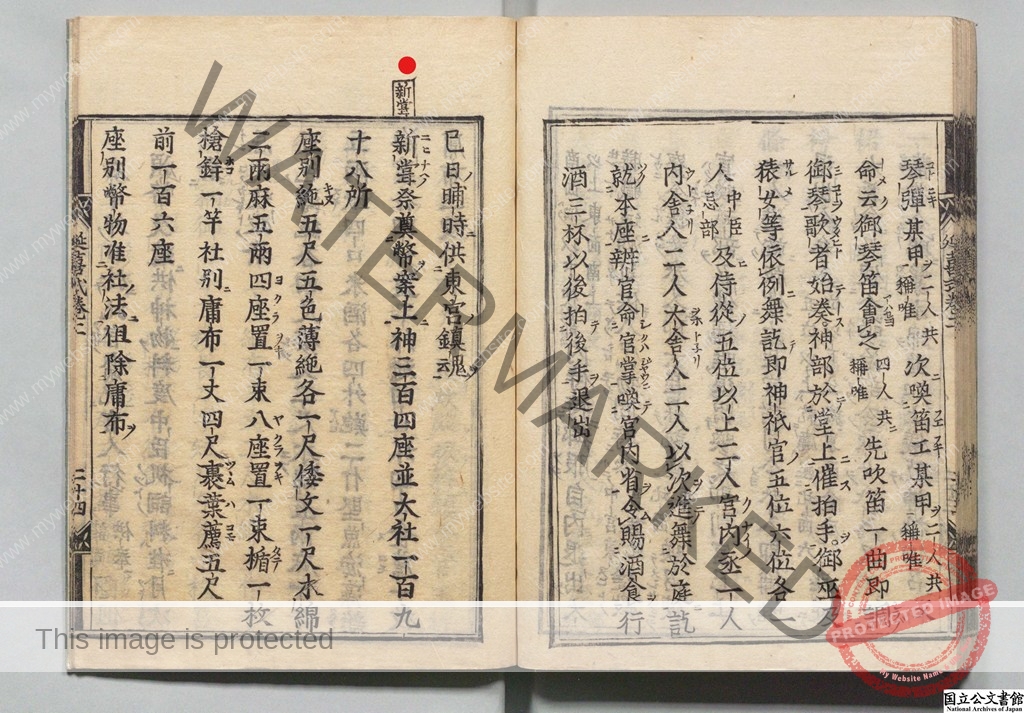 琴彈某甲 二人共稱唯 次喚笛工某甲 二人共稱唯
命云御琴笛會之 四人共稱唯 先吹笛一曲即調
御琴歌者始奏神部於堂上催拍手御巫及
猿女等依例舞訖即神祇官五位六位各一
人 中臣忌部 及侍從五位以上二人宮內丞一人
內舍人二人大舍人二人以次進舞於庭訖
就本座辨官命官掌喚宮內省令賜酒食行
酒三杯以後拍後手退出
新嘗
巳日晡時供東宮鎮魂云
新嘗祭奠幣案上神三百四座並大社一百九
十八所
座別絁五尺五色薄絁各一尺倭文一尺木綿
二兩麻五兩四座置一束八座置一束楯一枚
槍鉾一竿社別庸布一丈四尺裹葉薦五尺
前一百六座
座別幣物准社法徂除庸布
二十四
WATERMARKED
This image is protected
PROTECTED IMAGE
My Website Name
国立公文書館
National Archives of Japan